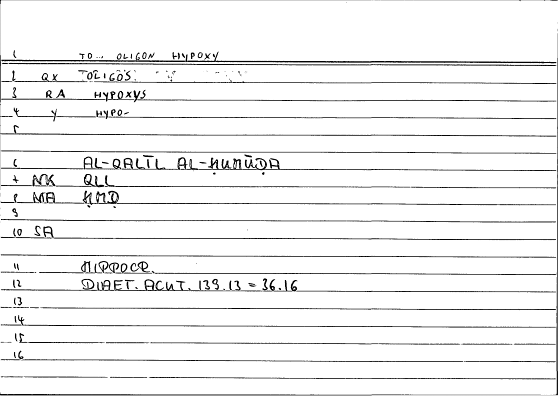 1 TO... OLIGON HYPOXY
2 QX OLIGOS
3 RA HYPOXYS
4 Y HYPO-
5
6 AL-QALĪL AL-ḤUMŪḌA
7 NK QLL
8 MA ḤMḌ
9
10 SA
11 HIPPOCR.
12 DIAET. ACUT. 139.13 = 36.16
13
14
15
16